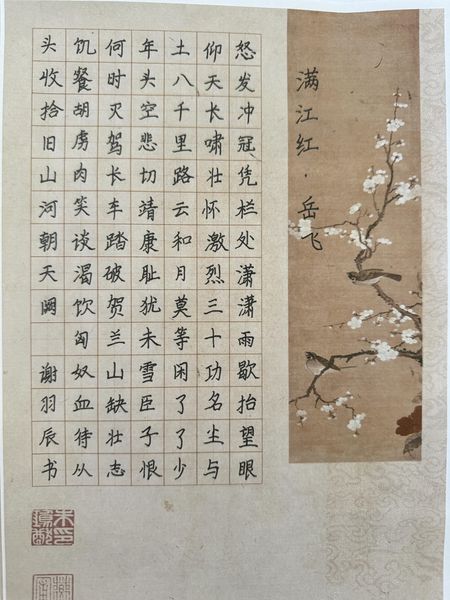 满江红·岳飞
怒发冲冠凭栏处潇潇雨歇抬望眼
仰天长啸壮怀激烈三十功名尘与
土八千里路云和月莫等闲了了少
年头空悲切靖康耻犹未雪臣子恨
何时灭驾长车踏破贺兰山缺壮志
饥餐胡虏肉笑谈渴饮匈奴血待从
头收拾旧山河朝天阙 谢羽辰书